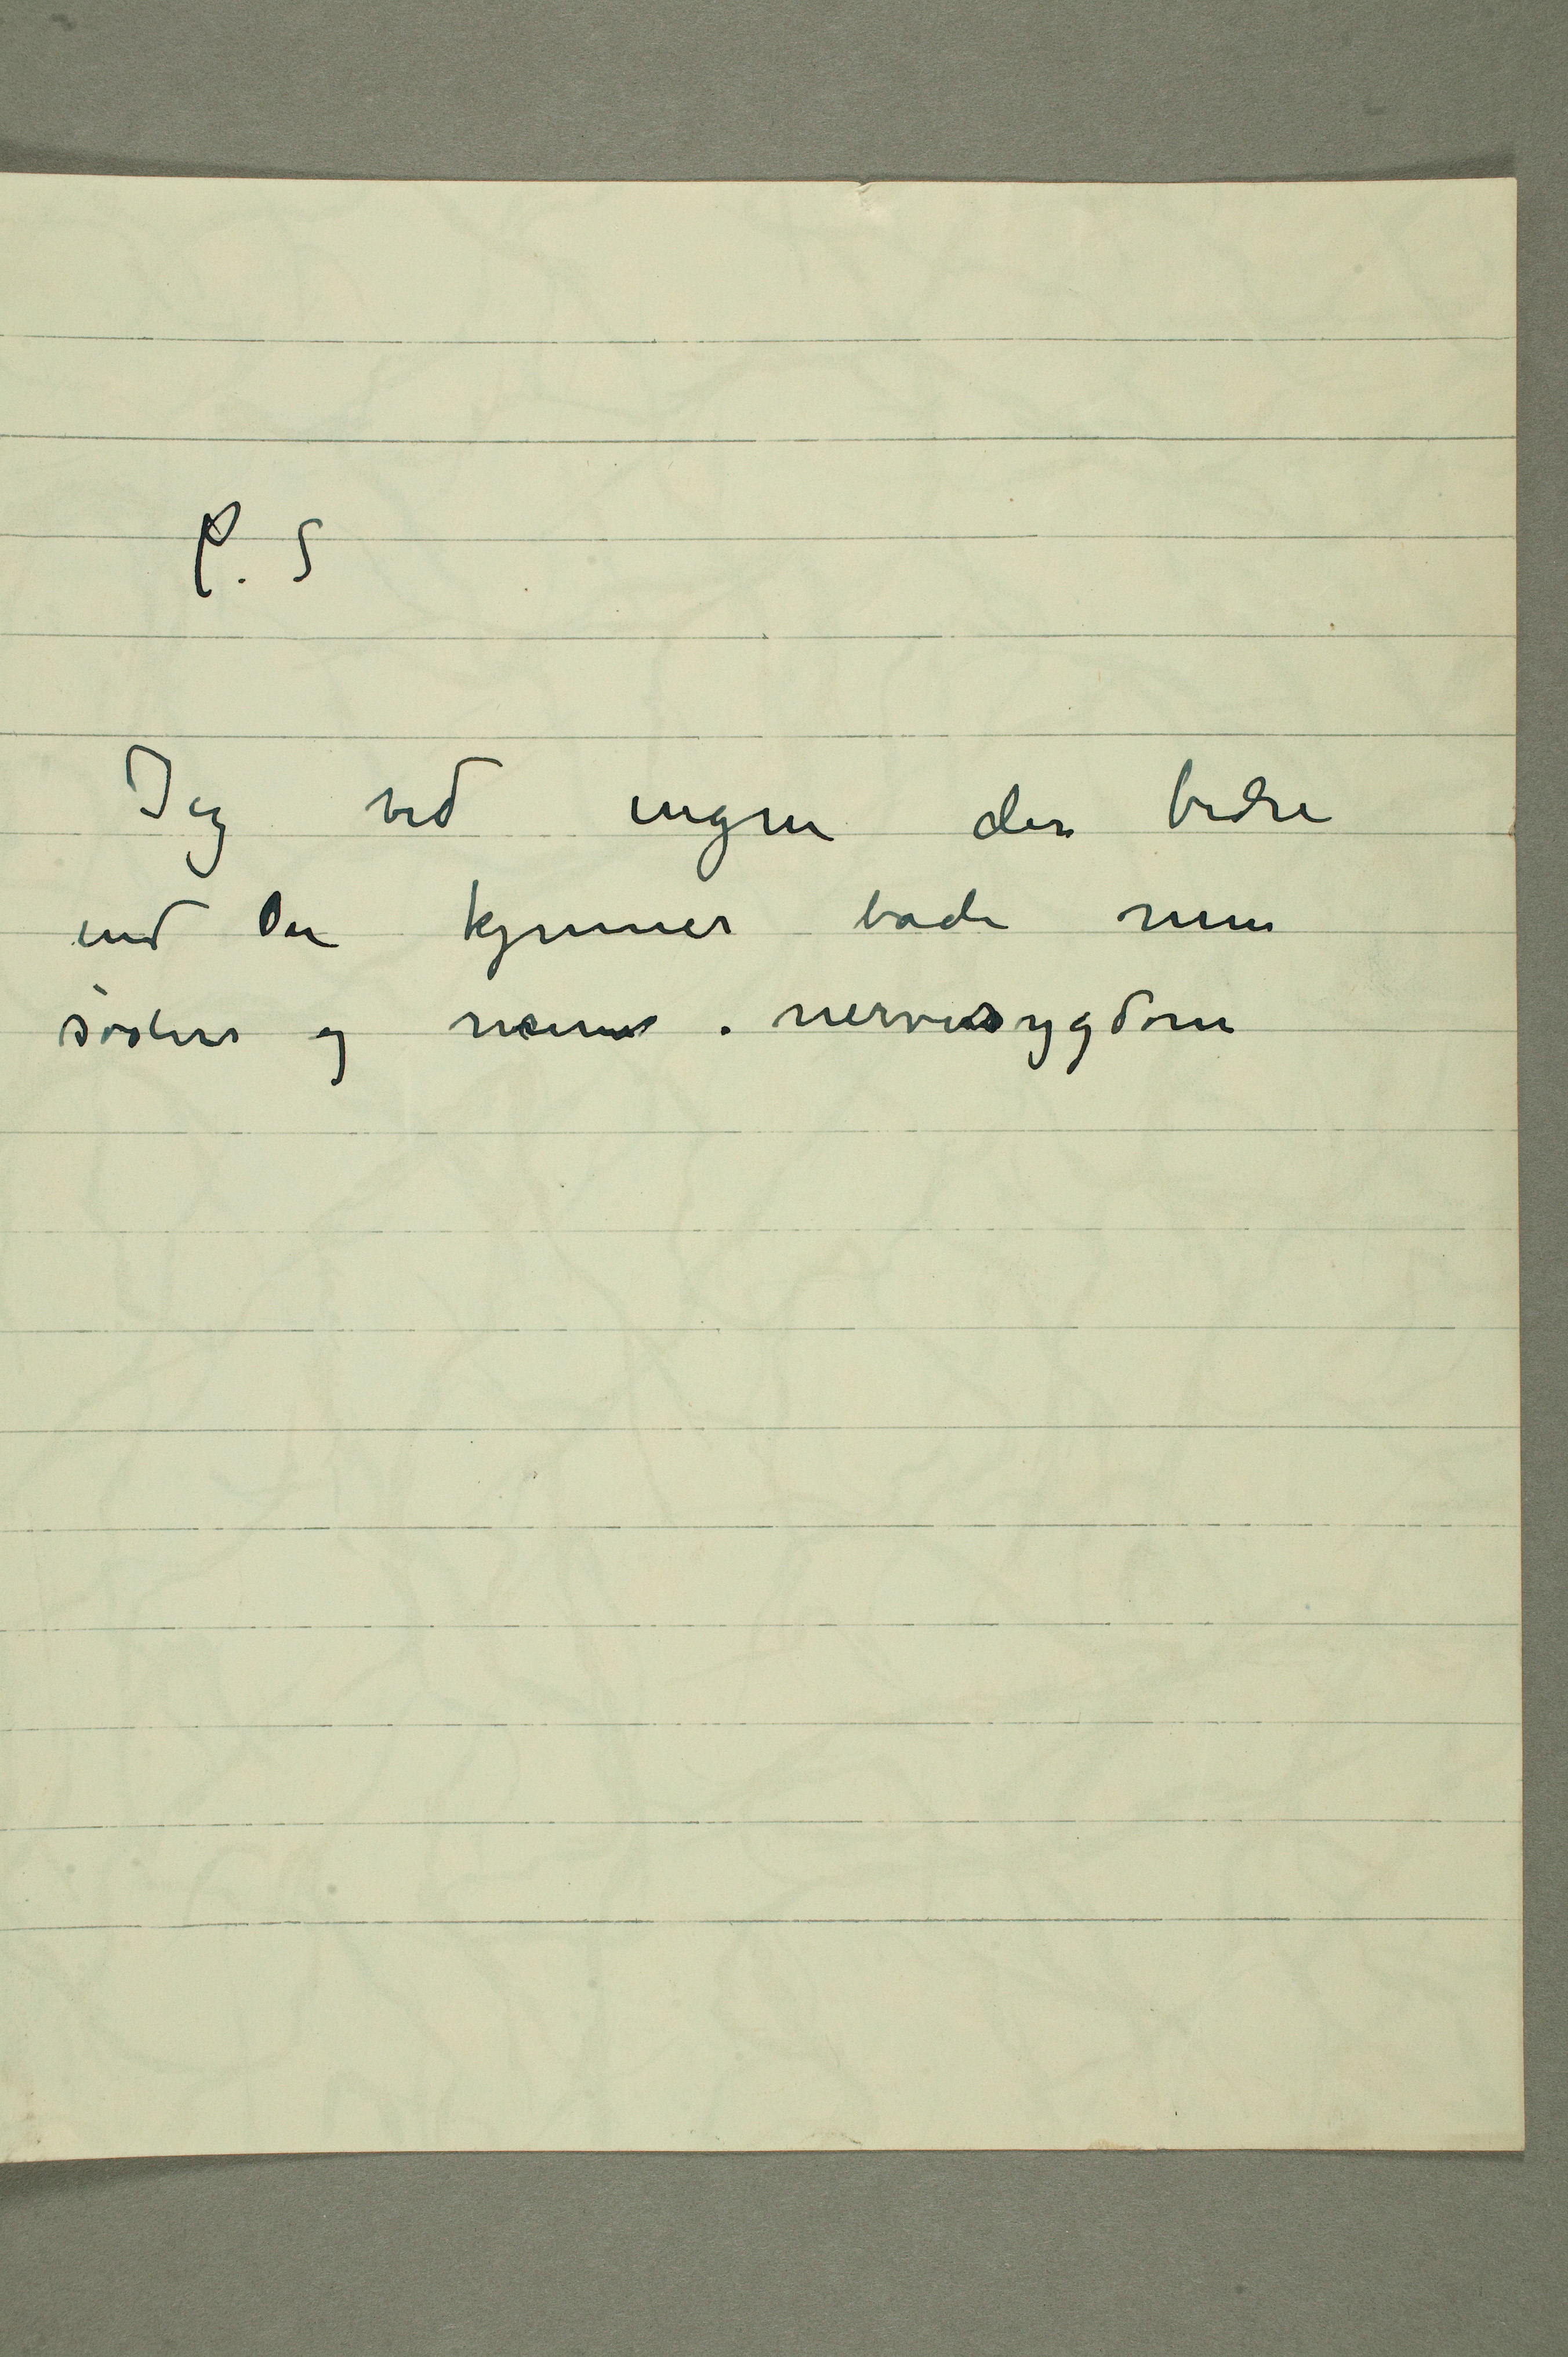 P. S
Jeg ved ingen der bedre
end De kjenner både min
søsters og min nervesygdom